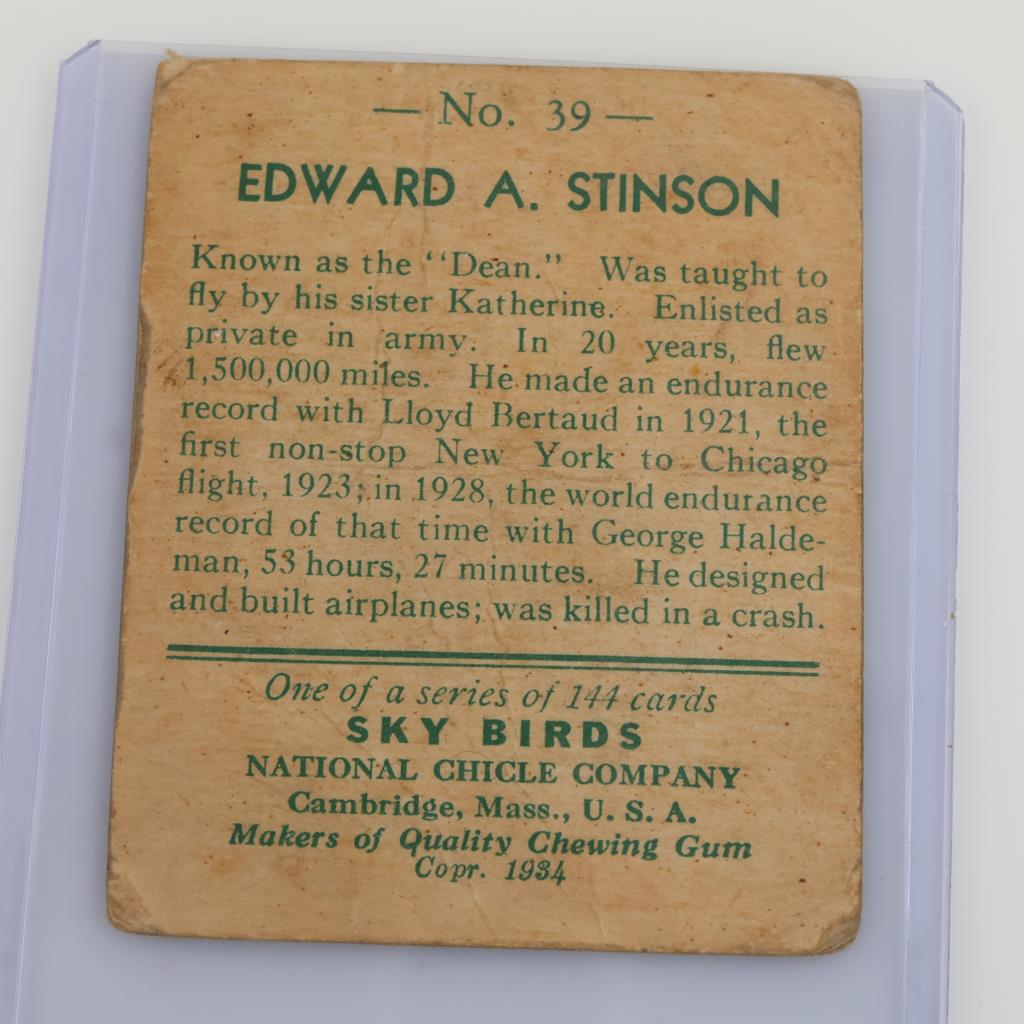 — No. 39 —
EDWARD A. STINSON
Known as the "Dean." Was taught to
fly by his sister Katherine. Enlisted as
private in army. In 20 years, flew
1,500,000 miles. He made an endurance
record with Lloyd Bertaud in 1921, the
first non-stop New York to Chicago
flight, 1923; in 1928, the world endurance
record of that time with George Halde-
man, 53 hours, 27 minutes. He designed
and built airplanes; was killed in a crash.
One of a series of 144 cards
SKY BIRDS
NATIONAL CHICLE COMPANY
Cambridge, Mass., U. S. A.
Makers of Quality Chewing Gum
Copr. 1934